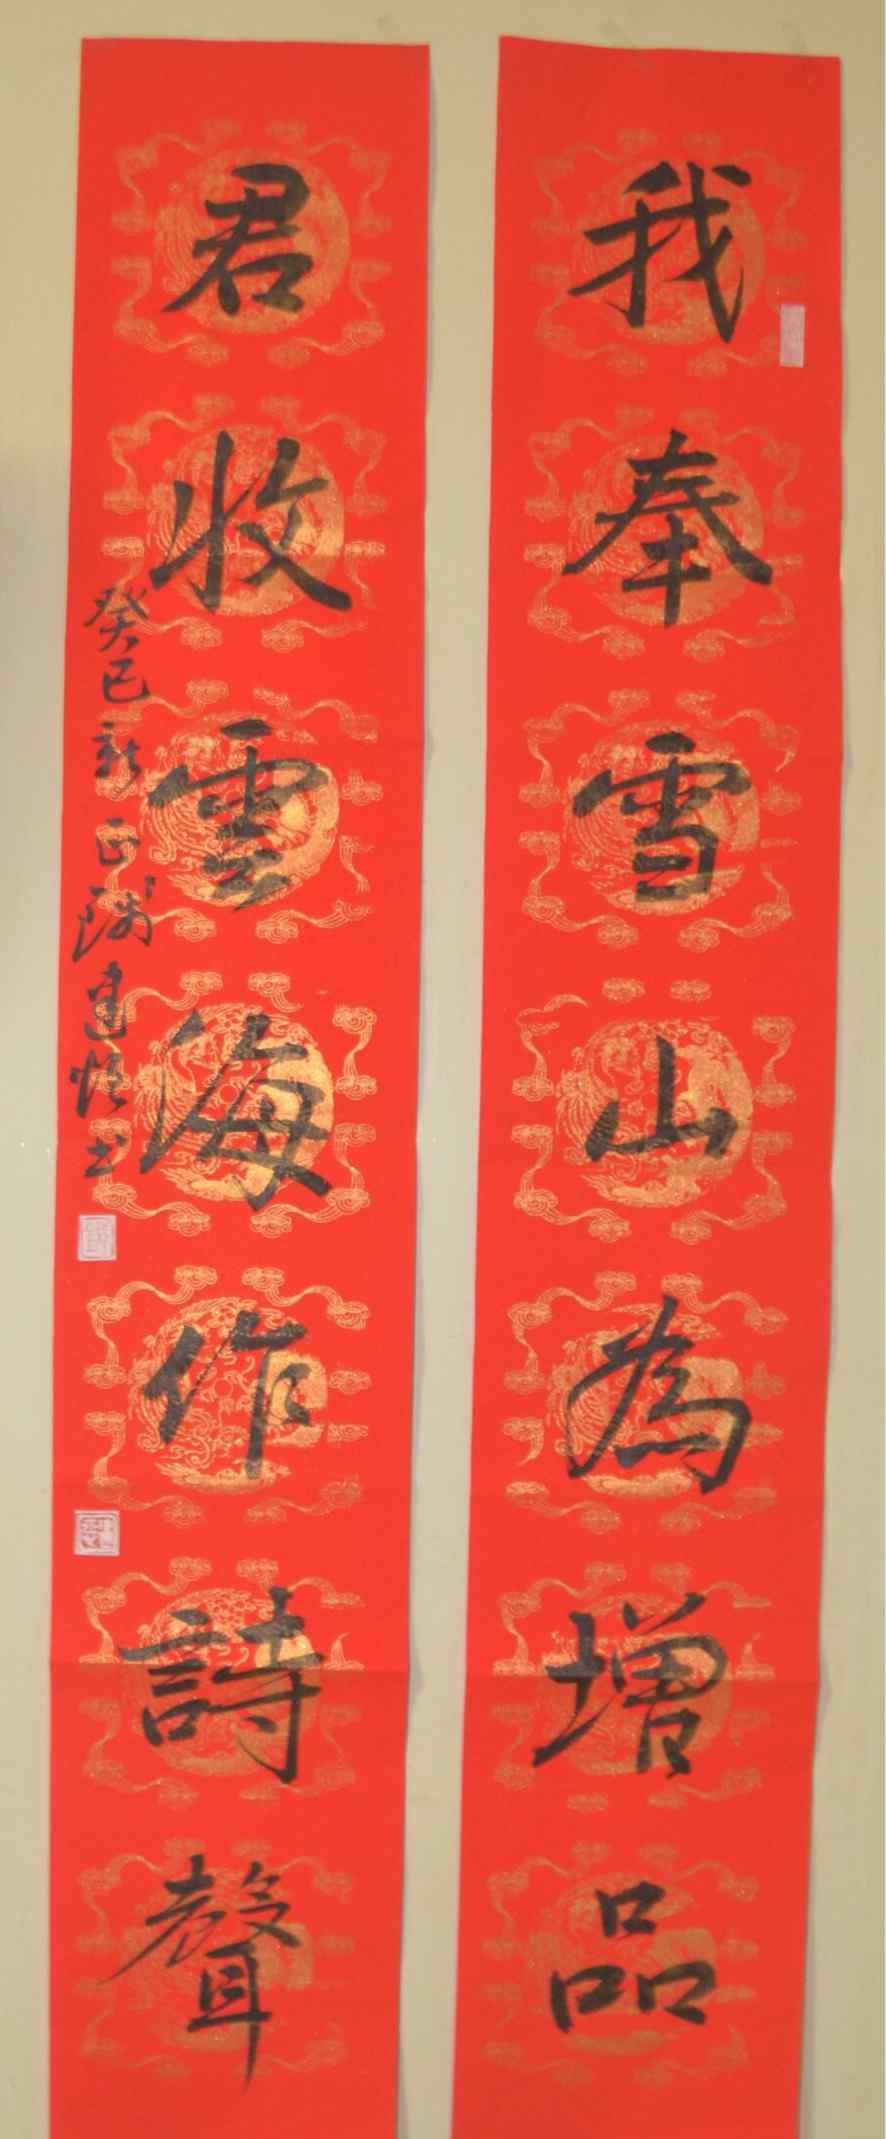 我奉雪山為增品
君收雲海作詩聲
癸巳新正
建悟书